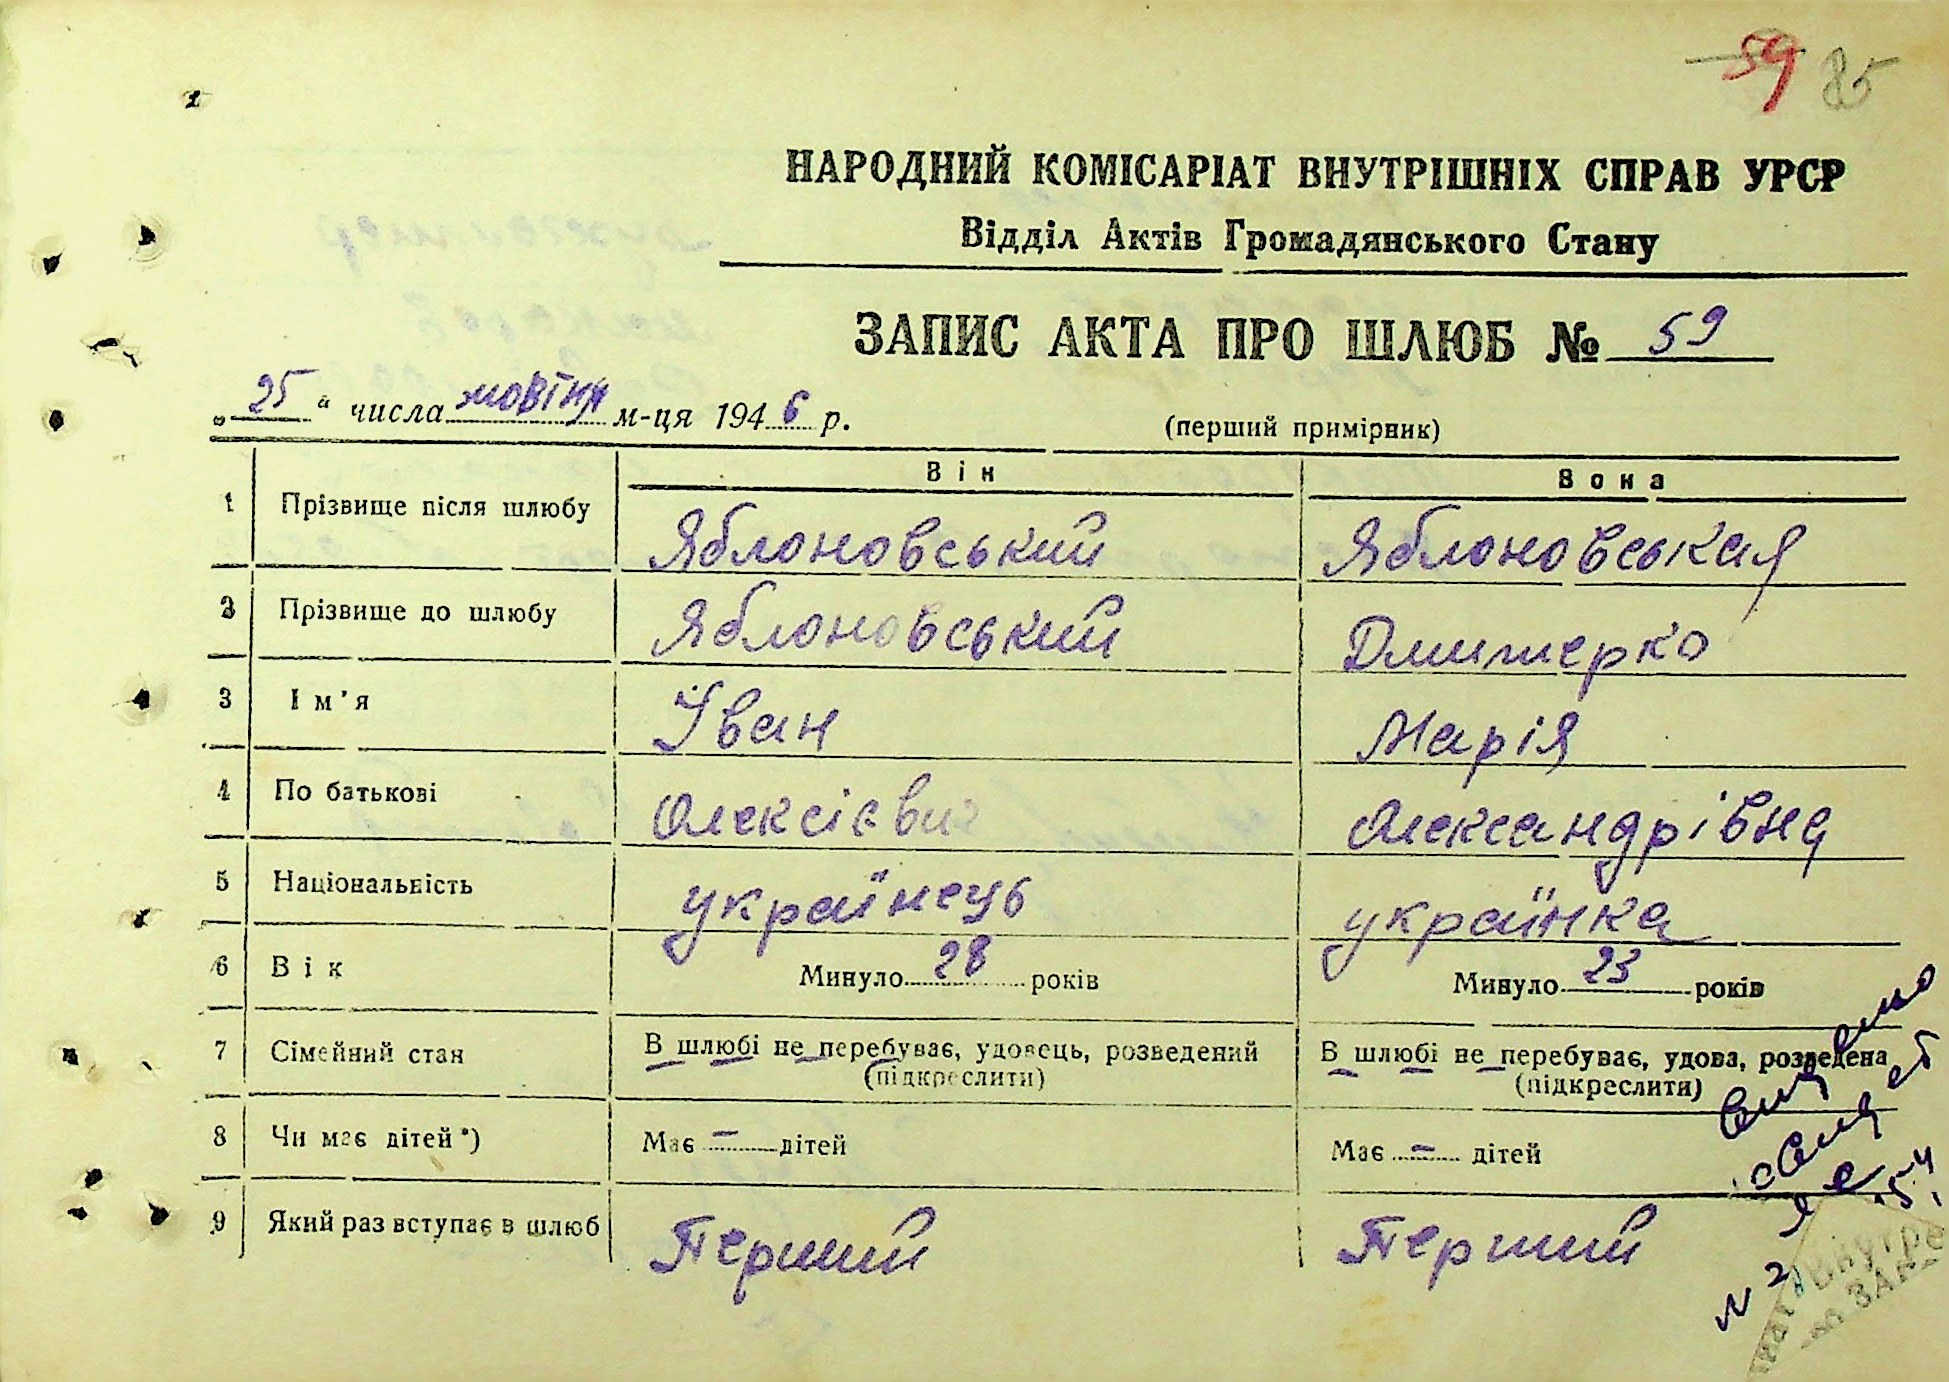 59 85
НАРОДНИЙ КОМІСАРІАТ ВНУТРІШНІХ СПРАВ УРСР
Відділ Актів Громадянського Стану
ЗАПИС АКТА ПРО ШЛЮБ № 59
„25“ числа жовтня м-ця 1946 р. (перший примірник)
Він Вона
1 Прізвище після шлюбу Яблоновський Яблоновськая
2 Прізвище до шлюбу Яблоновський Дмитерко
3 Ім’я Іван Марія
4 По батькові Олексієвич Александрівна
5 Національність українець українка
6 Вік Минуло 28 років Минуло 23 років
7 Сімейний стан В шлюбі не перебуває, удовець, розведений В шлюбі не перебуває, удова, розведена
(підкреслити) (підкреслити)
8 Чи має дітей*) Має – дітей Має – дітей
9 Який раз вступає в шлюб Перший Перший